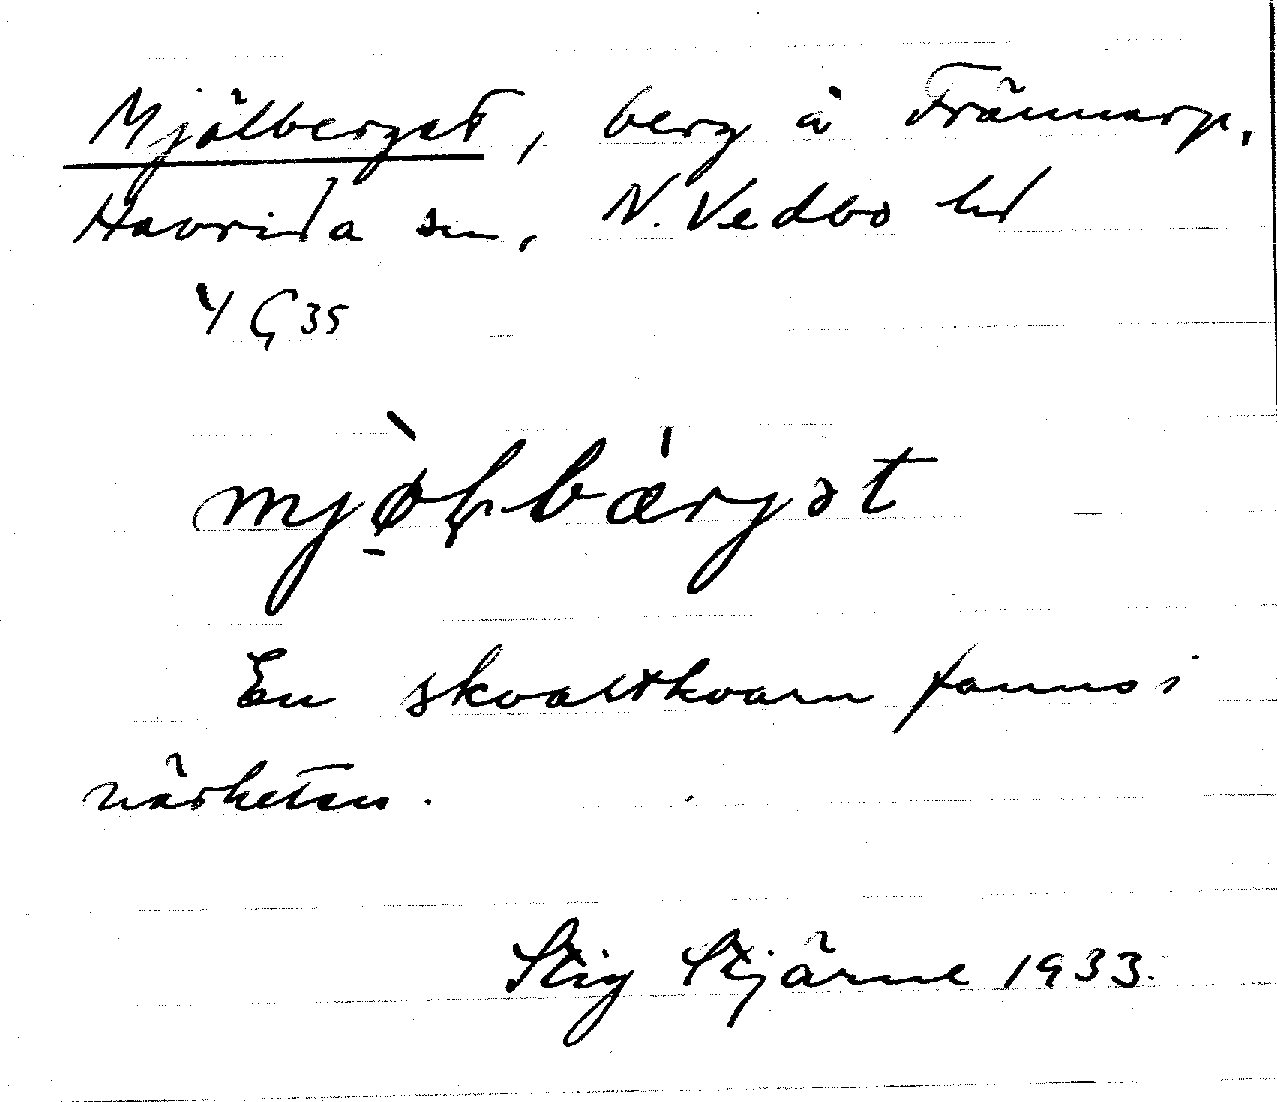 Mjölberget, berg å Frännarp,
Haurida sn, N. Vedbo hd
4 G 35
mjø̀lbærjət
En skvaltkvarn fanns i
närheten.
Stig Stjärne 1933.